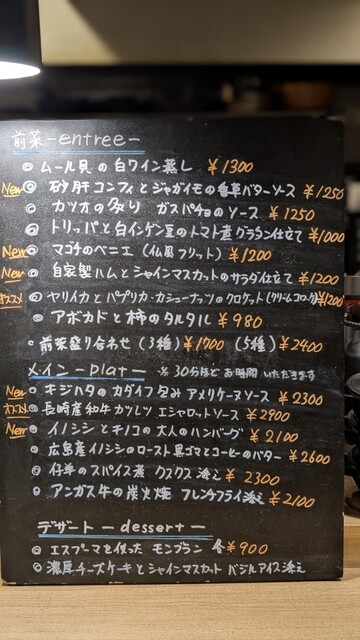 前菜 -entree-
◎ ムール貝の白ワイン蒸し ¥1300
New ◎ 砂肝コンフィとジャガイモの香草バターソース ¥1250
◎ カツオの炙り ガスパチョのソース ¥1250
◎ トリッパと白インゲン豆のトマト煮グラタン仕立て ¥1000
New ◎ マゴチのベニエ (仏風フリット) ¥1200
New ◎ 自家製ハムとシャインマスカットのサラダ仕立て ¥1200
オススメ ◎ ヤリイカとパプリカ・カシューナッツのクロケット(クリームコロッケ) ¥1200
◎ アボカドと柿のタルタル ¥980
◎ 前菜盛り合わせ (3種) ¥1700 (5種) ¥2400
メイン -plat- ※30分ほどお時間いただきます
New ◎ キジハタのカダイフ包み アメリケーヌソース ¥2300
オススメ ◎ 長崎産和牛カツレツ エシャロットソース ¥2900
New ◎ イノシシとキノコの大人のハンバーグ ¥2100
◎ 広島産イノシシのロースト 黒ゴマとコーヒーのバター ¥2600
◎ 仔羊のスパイス煮 クスクス添え ¥2300
◎ アンガス牛の炭火焼 フレンチフライ添え ¥2100
デザート -dessert-
◎ エスプーマを使った モンブラン 各¥900
◎ 濃厚チーズケーキとシャインマスカット バジルアイス添え